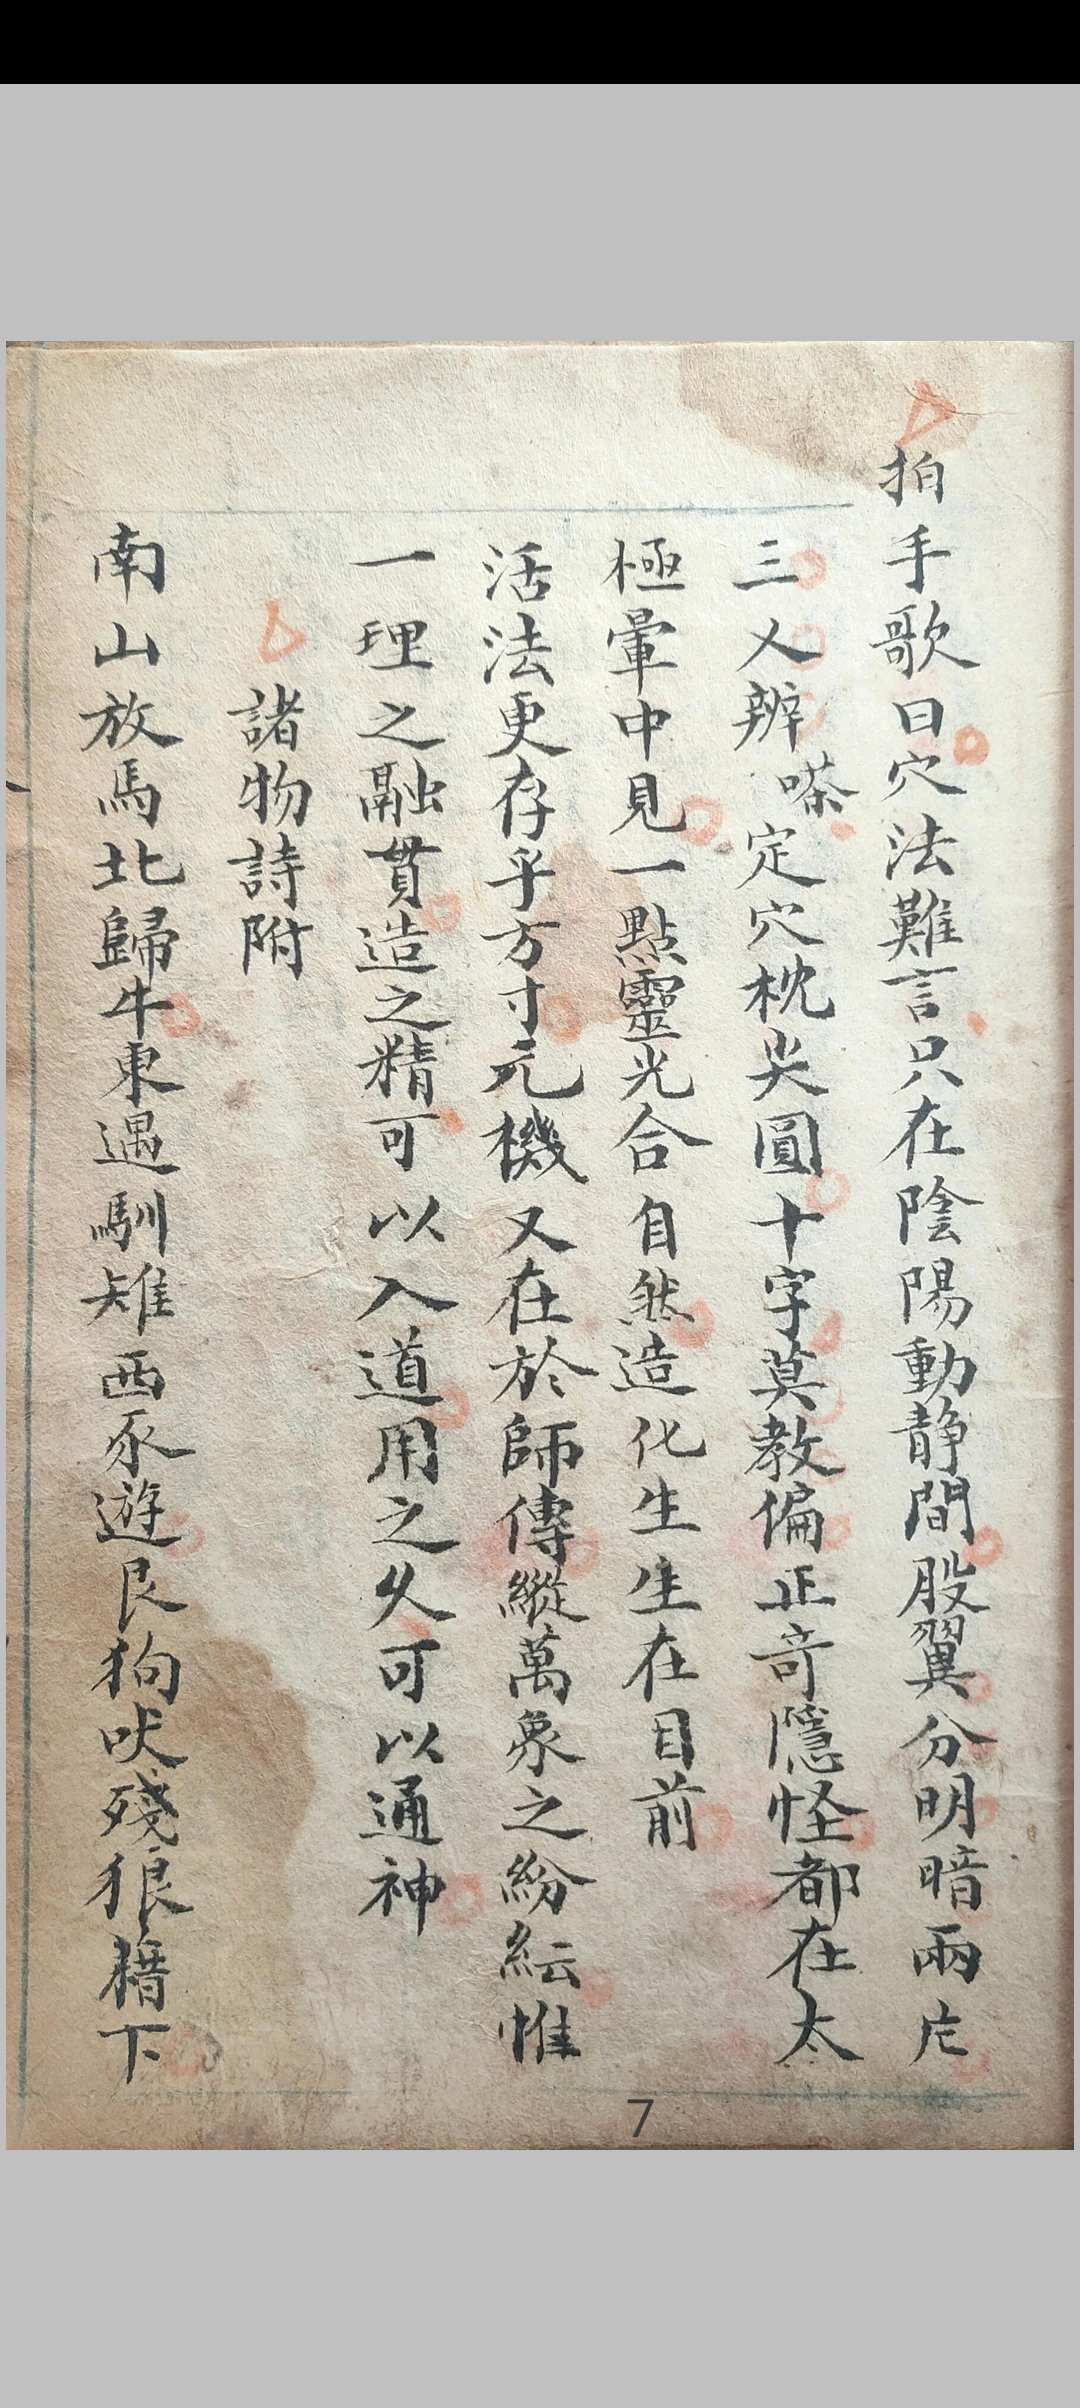 拍手歌曰穴法難言只在陰陽動静間股翼分明暗兩片
三人辨嗏定穴枕尖圓十字莫教偏正竒隱怪都在太
極暈中見一點靈光合自然造化生生在目前
活法更存乎方寸元機又在於師傳縱萬象之紛紜惟
一理之融貫造之精可以入道用之久可以通神
諸物詩附
南山放馬北歸牛東遇馴雉西豕遊艮狗吠殘狼藉下
7